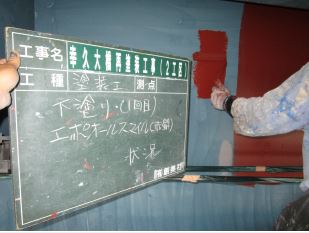 工事名 幸久大橋再塗装工事(2工区)
工種 塗装工 測点
下塗り・(1回目)
エポオールスマイル(赤錆)
状況